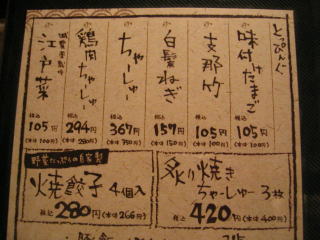 とっぴんぐ
味付けたまご
税込
105円
(本体100円)
支那竹
税込
105円
(本体100円)
白髪ねぎ
税込
157円
(本体150円)
ちゃーしゅー
税込
367円
(本体350円)
鶏肉ちゃーしゅー
税込
294円
(本体280円)
江戸菜
税込
105円
(本体100円)
野菜たっぷりの自家製
焼餃子 4個入
税込 280円 (本体266円)
炙り焼き
ちゃーしゅー 3枚
税込 420円 (本体400円)